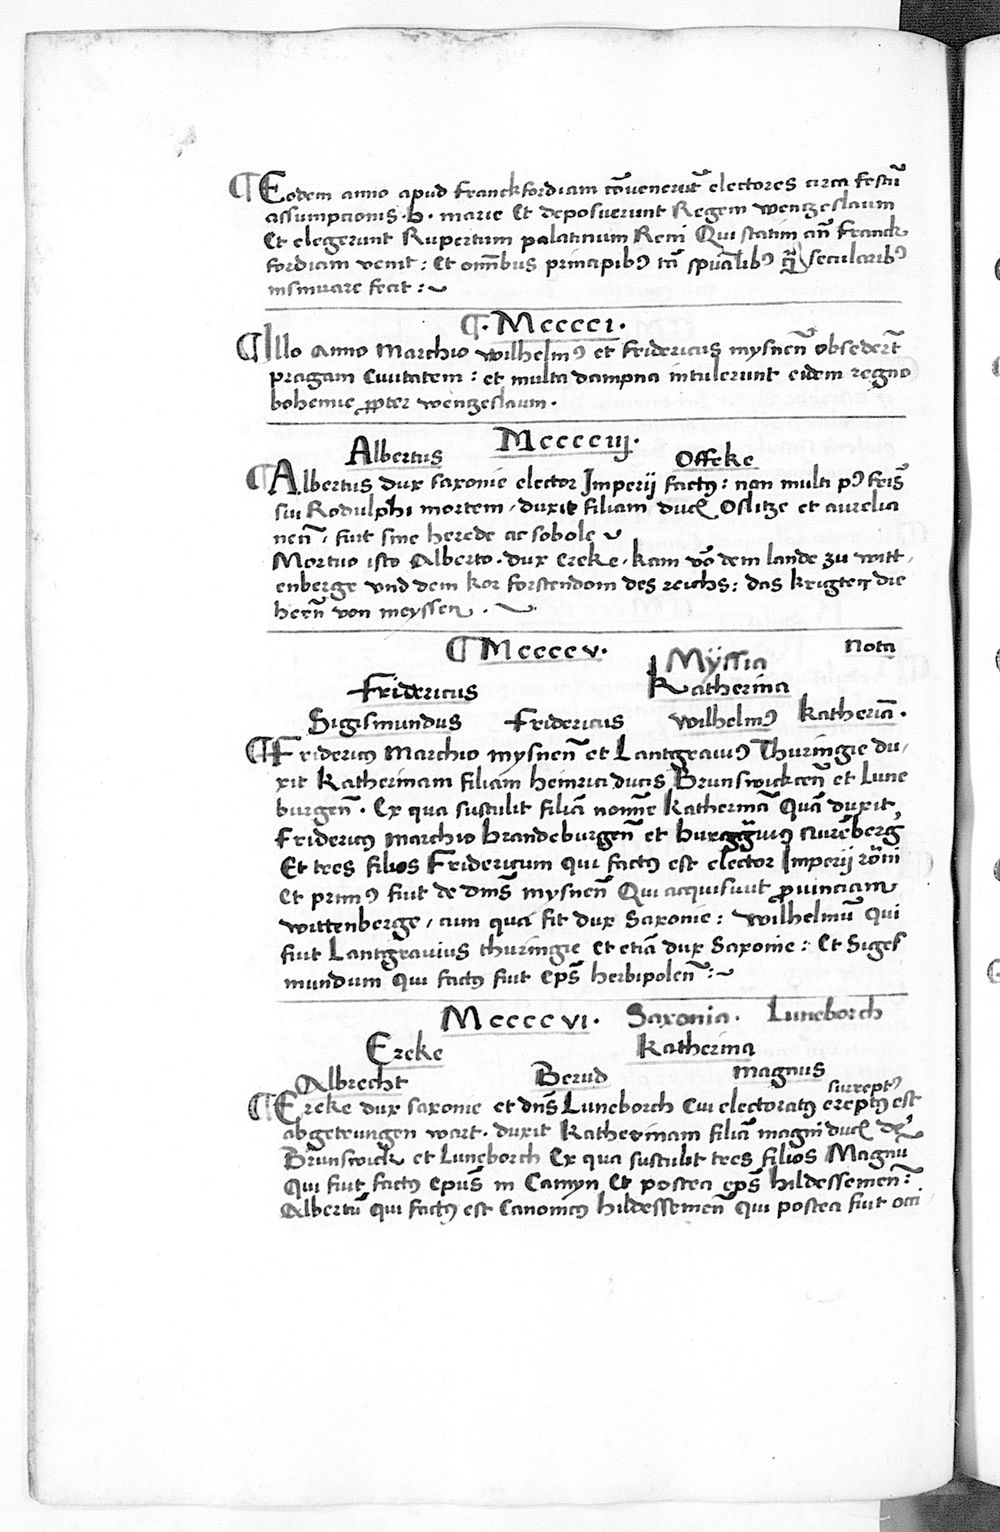 ¶Eodem anno apud Franckfordiam cōvenerūt electores circa festū
assumpcionis . b . marie Et deposuerunt Regem wentzeslaum
Et elegerunt Rupertum palatinum Reni Qui statim añ Franck
fordiam venit : Et omībus principibꝰ tā spūalibꝰ q̄ secularibꝰ
insinuare fecit :~
¶. Mccccı .
¶Illo Anno Marchio wilhelmꝰ et fridericus mysnen̄ obsederūt
pragam Civitatem : et multa dampna intulerunt eidem regno
bohemie ꝓpter wentzeslaum .
Mccccııȷ .
Albertus Offeke
¶Albertus dux saxonie elector Imperij factus : non multi pꝰ fr̄is
sui Rodulphi mortem , duxit filiam duc̄ Oslitze et aurelia
nen̄ , fuit sine herede ac sobole ~
Mortuo isto Alberto . dux Ereke . kam vō dem lande zu witt ,
enberge vnd dem kor forstendom des reichs : das krigten die
hern̄ von meyssen . ~
¶ Mccccv . Nota
Mÿssia
Fridericus Katherina
Sigismundus Fridericus wilhelmꝰ katheriā .
¶Fridericꝰ Marchio mysnen̄ et Lantgraviꝰ Thuringie du ,
xit Katherinam filiam heinrici ducis Brunswickcen̄ et Lune
burgen̄ . Ex qua sustulit filiā nomīe Katherinā Quā duxit ,
Fridericꝰ marchio brandeburgen̄ et burggr̄viꝰ nurēberg
Et tres filios Fridericum qui factꝰ est elector Imperij rōni
Et primꝰ fuit de dm̄s mysnen̄ Qui acquisiuit ꝓvinciam
wittenberge , cum qua fit dux Saxonie : wilhelmū qui
fuit Lantgravius thuringie Et etiā dux Saxonie : Et Siges
mundum qui factꝰ fuit ep̄s herbipolen̄ :~
Mccccvı . Saxonia . Luneborch
Ereke Katherina
Albrecht Bernd magnus
surreptꝰ
¶Ereke dux saxonie et dn̄s Luneborch Cui electoratꝰ ereptꝰ est
abgetrungen wart . duxit Katherinam filiā magni duc̄ de
Brunswick et Luneborch Ex qua sustulit tres filios Magnū
Qui fuit factꝰ Epūs in Camyn Et postea ep̄s hildessemen̄ :
Albertū qui factꝰ est Canonicꝰ hildessemen̄ qui postea fuit occi